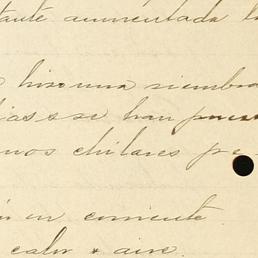 tante aumentada la
hizo una siembra
dias se han
mos chilares pe
en corriente
calor y aire.